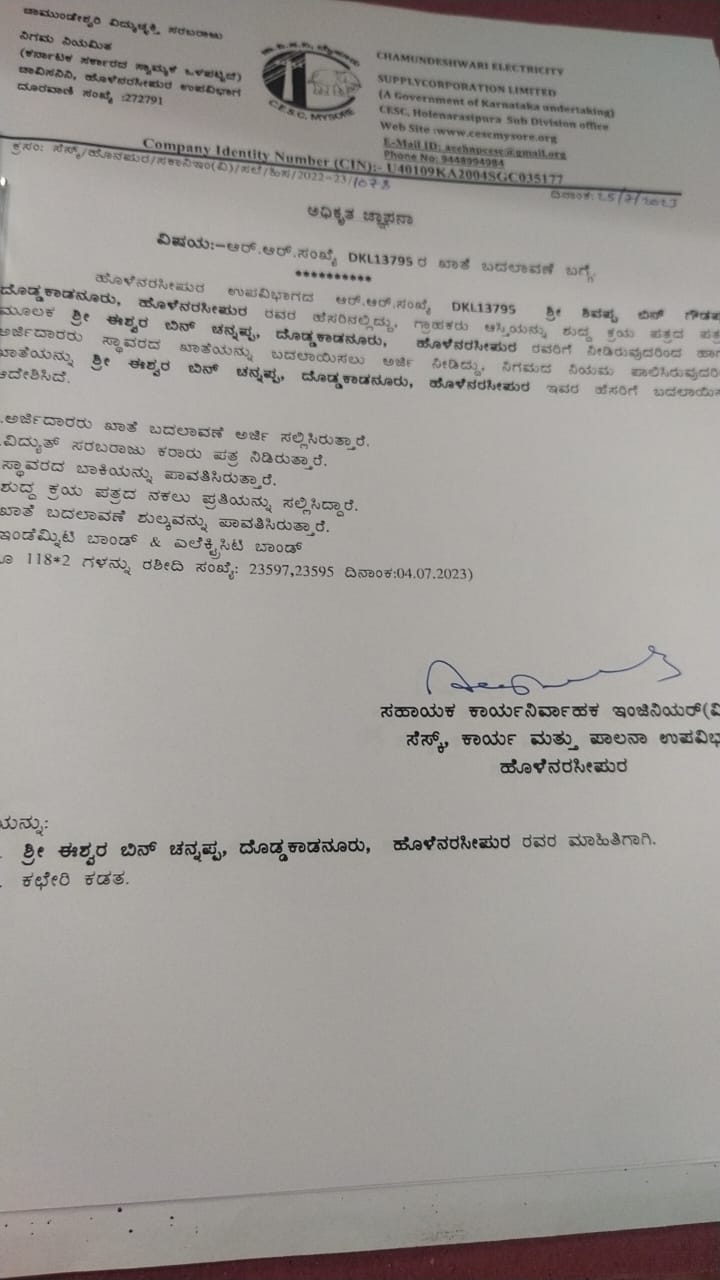 ಚಾಮುಂಡೇಶ್ವರಿ ವಿದ್ಯುಚ್ಛಕ್ತಿ ಸರಬರಾಜು
ನಿಗಮ ನಿಯಮಿತ
(ಕರ್ನಾಟಕ ಸರ್ಕಾರದ ಸ್ವಾಮ್ಯಕ್ಕೆ ಒಳಪಟ್ಟಿದೆ)
ಚಾವಿಸನಿನಿ, ಹೊಳೆನರಸೀಪುರ ಉಪವಿಭಾಗ
ದೂರವಾಣಿ ಸಂಖ್ಯೆ :272791
C.E.S.C, MYSORE
CHAMUNDESHWARI ELECTRICITY
SUPPLYCORPORATION LIMITED
(A Government of Karnataka undertaking)
CESC, Holenarasipura Sub Division office
Web Site :www.cescmysore.org
E-Mail ID: aeehnpcesc@gmail.org
Phone No: 9448994984
Company Identity Number (CIN):- U40109KA2004SGC035177
ಕ್ರಸಂ: ಸೆಸ್ಕ್/ಹೊನಪುರ/ಸಕಾನಿಇಂ(ವಿ)/ಸಲೆ/ಹಿಸ/2022-23/1078
ದಿನಾಂಕ: 25/7/2023
ಅಧಿಕೃತ ಜ್ಞಾಪನಾ
ವಿಷಯ:-ಆರ್.ಆರ್.ಸಂಖ್ಯೆ DKL13795 ರ ಖಾತೆ ಬದಲಾವಣೆ ಬಗ್ಗೆ
**********
ಹೊಳೆನರಸೀಪುರ ಉಪವಿಭಾಗದ ಆರ್.ಆರ್.ಸಂಖ್ಯೆ DKL13795 ಶ್ರೀ ಶಿವಪ್ಪ ಬಿನ್
ದೊಡ್ಡಕಾಡನೂರು, ಹೊಳೆನರಸೀಪುರ ರವರ ಹೆಸರಿನಲ್ಲಿದ್ದು, ಗ್ರಾಹಕರು ಆಸ್ತಿಯನ್ನು ಶುದ್ದ ಕ್ರಯ ಪತ್ರದ
ಮೂಲಕ ಶ್ರೀ ಈಶ್ವರ ಬಿನ್ ಚನ್ನಪ್ಪ, ದೊಡ್ಡಕಾಡನೂರು, ಹೊಳೆನರಸೀಪುರ ರವರಿಗೆ ನೀಡಿರುವುದರಿಂದ
ಅರ್ಜಿದಾರರು ಸ್ಥಾವರದ ಖಾತೆಯನ್ನು ಬದಲಾಯಿಸಲು ಅರ್ಜಿ ನೀಡಿದ್ದು, ನಿಗಮದ ನಿಯಮ
ಖಾತೆಯನ್ನು ಶ್ರೀ ಈಶ್ವರ ಬಿನ್ ಚನ್ನಪ್ಪ, ದೊಡ್ಡಕಾಡನೂರು, ಹೊಳೆನರಸೀಪುರ ಇವರ ಹೆಸರಿಗೆ
ಆದೇಶಿಸಿದೆ.
.ಅರ್ಜಿದಾರರು ಖಾತೆ ಬದಲಾವಣೆ ಅರ್ಜಿ ಸಲ್ಲಿಸಿರುತ್ತಾರೆ.
.ವಿದ್ಯುತ್ ಸರಬರಾಜು ಕರಾರು ಪತ್ರ ನಿಡಿರುತ್ತಾರೆ.
ಸ್ಥಾವರದ ಬಾಕಿಯನ್ನು ಪಾವತಿಸಿರುತ್ತಾರೆ.
ಶುದ್ದ ಕ್ರಯ ಪತ್ರದ ನಕಲು ಪ್ರತಿಯನ್ನು ಸಲ್ಲಿಸಿದ್ದಾರೆ.
ಖಾತೆ ಬದಲಾವಣೆ ಶುಲ್ಕವನ್ನು ಪಾವತಿಸಿರುತ್ತಾರೆ.
ಇಂಡೆಮ್ನಿಟಿ ಬಾಂಡ್ & ಎಲೆಕ್ಟ್ರಿಸಿಟಿ ಬಾಂಡ್
118*2 ಗಳನ್ನು ರಶೀದಿ ಸಂಖ್ಯೆ: 23597,23595 ದಿನಾಂಕ:04.07.2023)
ಸಹಾಯಕ ಕಾರ್ಯನಿರ್ವಾಹಕ ಇಂಜಿನಿಯರ್(ವಿ
ಸೆಸ್ಕ್, ಕಾರ್ಯ ಮತ್ತು ಪಾಲನಾ
ಹೊಳೆನರಸೀಪುರ
ಶ್ರೀ ಈಶ್ವರ ಬಿನ್ ಚನ್ನಪ್ಪ, ದೊಡ್ಡಕಾಡನೂರು, ಹೊಳೆನರಸೀಪುರ ರವರ ಮಾಹಿತಿಗಾಗಿ.
ಕಛೇರಿ ಕಡತ.